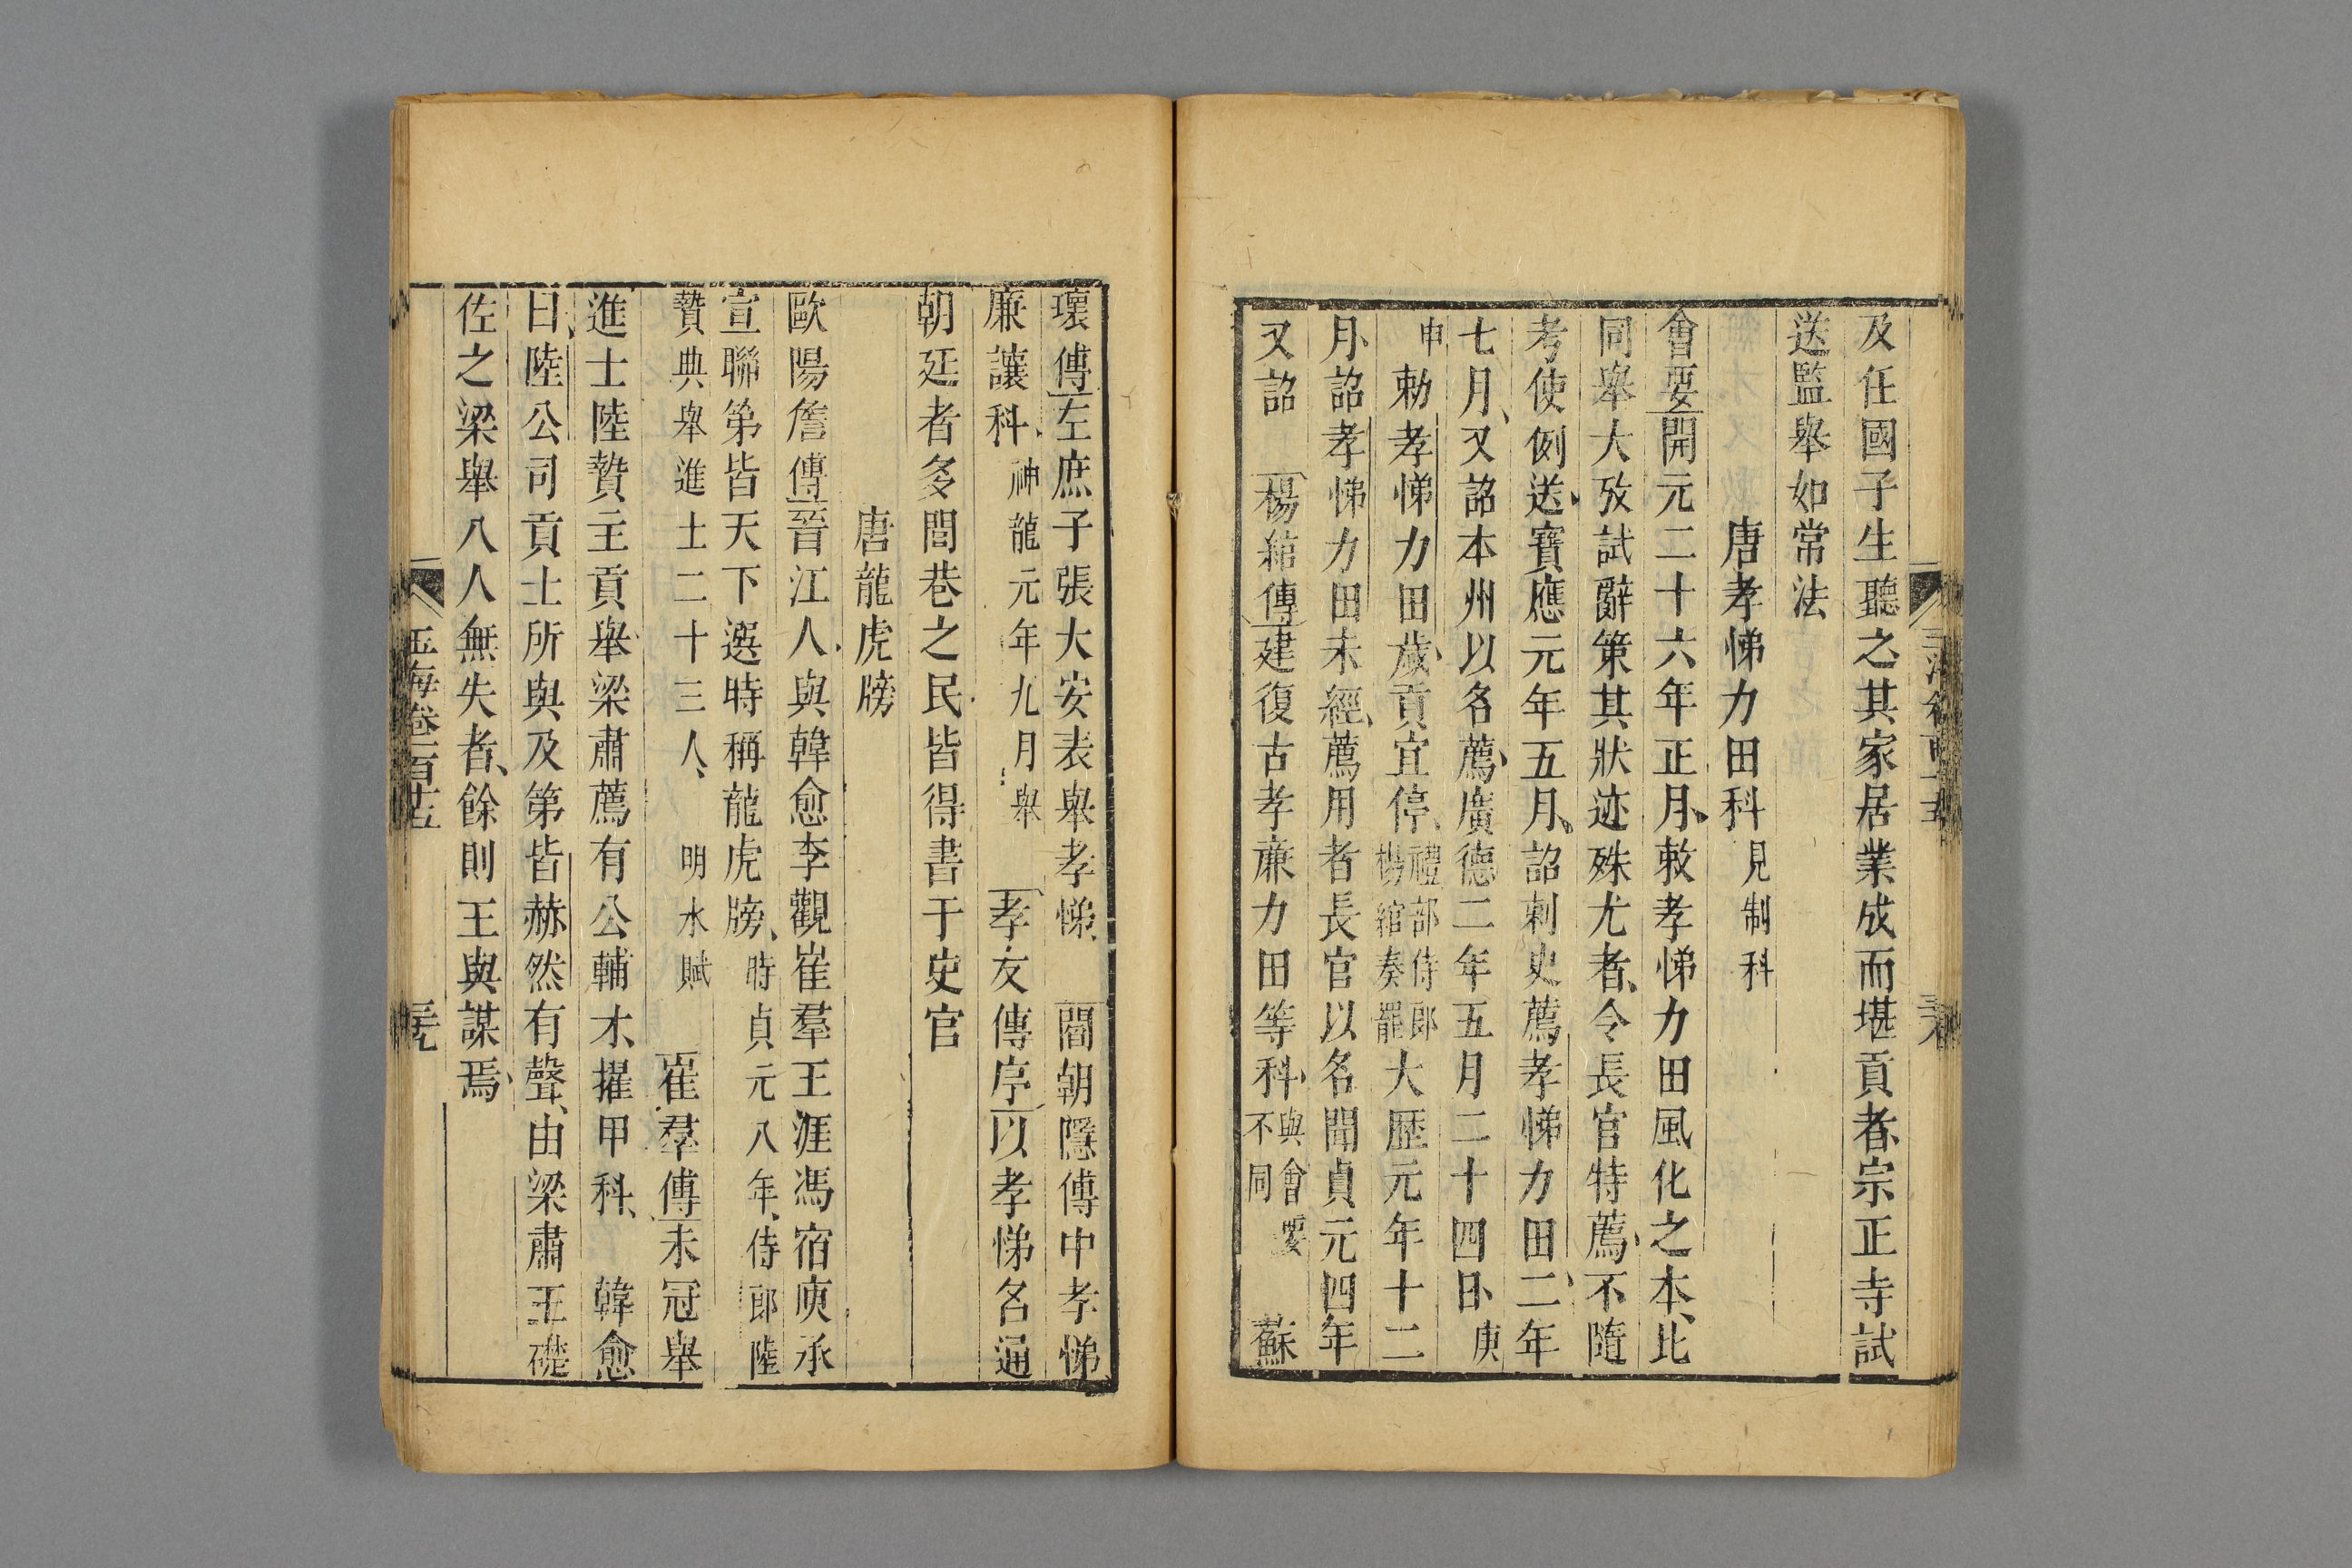 及任國子生聽之其家居業成而堪貢者宗正寺試
送監舉如常法
唐孝悌力田科見制科
會要開元二十六年正月敕孝悌力田風化之本比
同舉大攷試辭策其狀迹殊尤者令長官特薦不隨
考使例送寶應元年五月詔刺史薦孝悌力田二年
七月又詔本州以名薦廣德二年五月二十四日庚
申勅孝悌力田歲貢宜停禮部侍郎楊綰奏罷大歷元年十二
月詔孝悌力田未經薦用者長官以名聞貞元四年
又詔 楊綰傳建復古孝廉力田等科與會要不同 蘇
瓌傳左庶子張大安表舉孝悌 閻朝隱傳中孝悌
廉讓科神龍元年九月舉 孝友傳序以孝悌名通
朝廷者多閭巷之民皆得書于史官
唐龍虎牓
歐陽詹傳晉江人與韓愈李觀崔羣王涯馮宿庾承
宣聯第皆天下選時稱龍虎牓時貞元八年侍郎陸
贄典舉進士二十三人 明水賦 崔羣傳未冠舉
進士陸贄主貢舉梁肅薦有公輔才擢甲科 韓愈
曰陸公司貢士所與及第皆赫然有聲由梁肅王礎
佐之梁舉八人無失者餘則王與謀焉
玉海卷一百十五